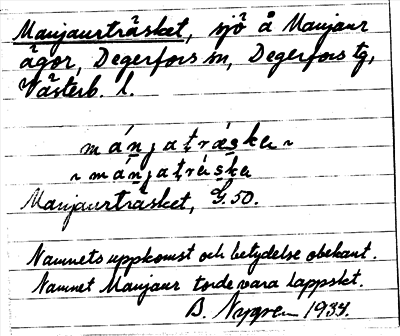 Manjaurträsket, sjö å Manjaur
ägor, Degerfors sn, Degerfors tg,
Västerb. l.
mánjatrǻska ~
~ mánjatráska
Manjaurträsket, G. 50.
Namnets uppkomst och betydelse obekant.
Namnet Manjaur torde vara lappskt.
B. Nygren 1934.